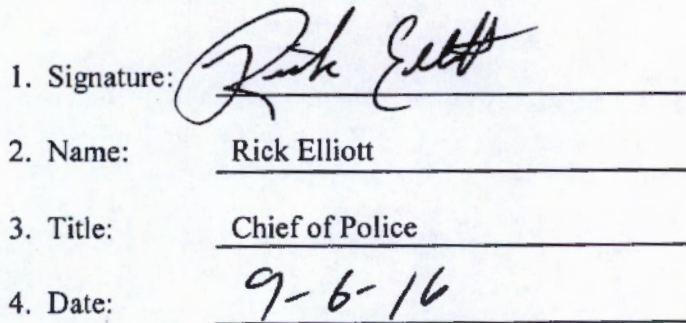 1. Signature: Rick Elliott
2. Name: Rick Elliott
3. Title: Chief of Police
4. Date: 9-6-16